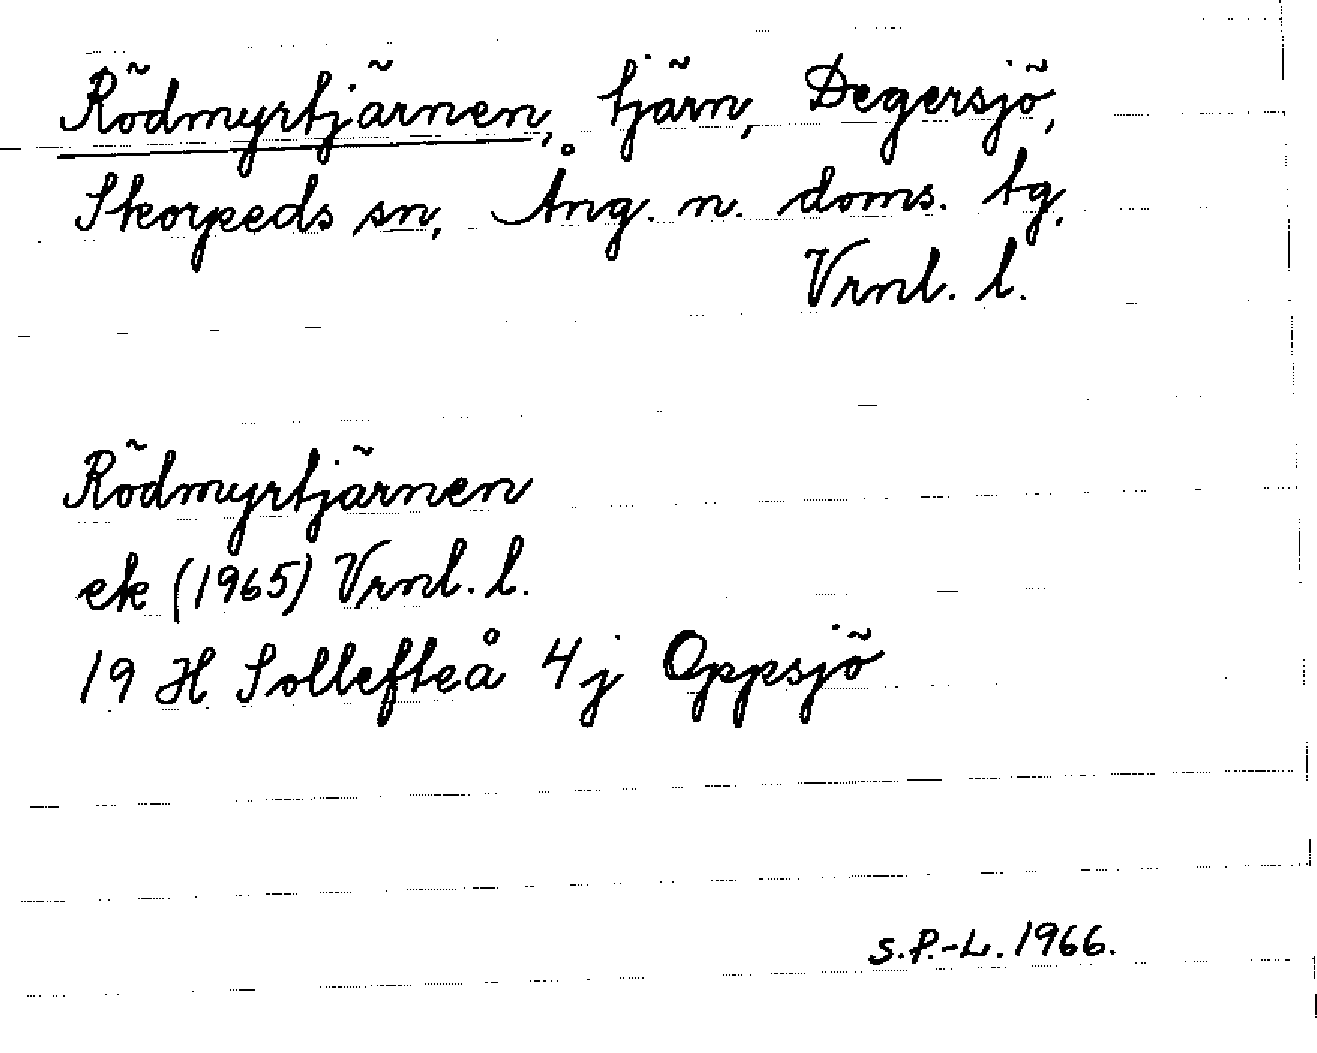 Rödmyrtjärnen, tjärn, Degersjö,
Skorpeds sn, Ång. n. doms. tg,
Vrnl. l.
Rödmyrtjärnen
ek (1965) Vrnl. l.
19 H Sollefteå 4j Oppsjö
S.P.-L. 1966.